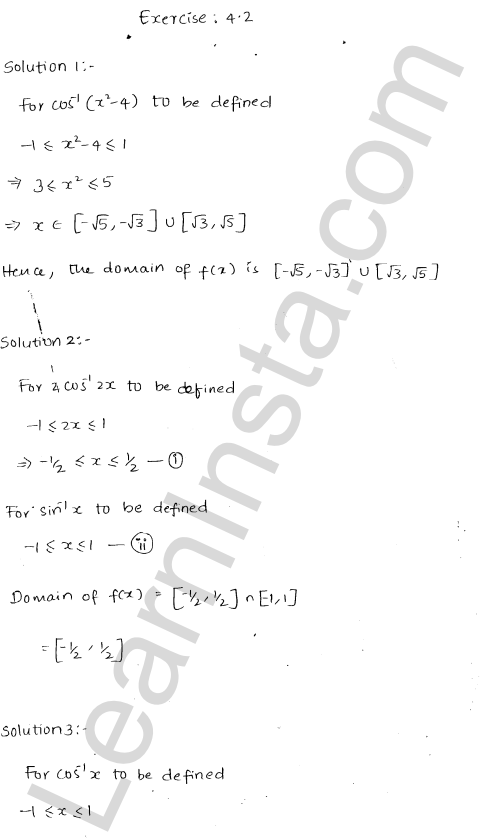 Exercise: 4.2
Solution 1:-
For cos⁻¹(x²-4) to be defined
-1 ≤ x²-4 ≤ 1
⇒ 3 ≤ x² ≤ 5
⇒ x ∈ [-√5, -√3] ∪ [√3, √5]
Hence, the domain of f(x) is [-√5, -√3] ∪ [√3, √5]
Solution 2:-
For 2cos⁻¹ 2x to be defined
-1 ≤ 2x ≤ 1
⇒ -1/2 ≤ x ≤ 1/2 — (i)
For sin⁻¹x to be defined
-1 ≤ x ≤ 1 — (ii)
Domain of f(x) = [-1/2, 1/2] ∩ [-1, 1]
= [-1/2, 1/2]
Solution 3:-
For cos⁻¹x to be defined
-1 ≤ x ≤ 1
LearnInsta.com